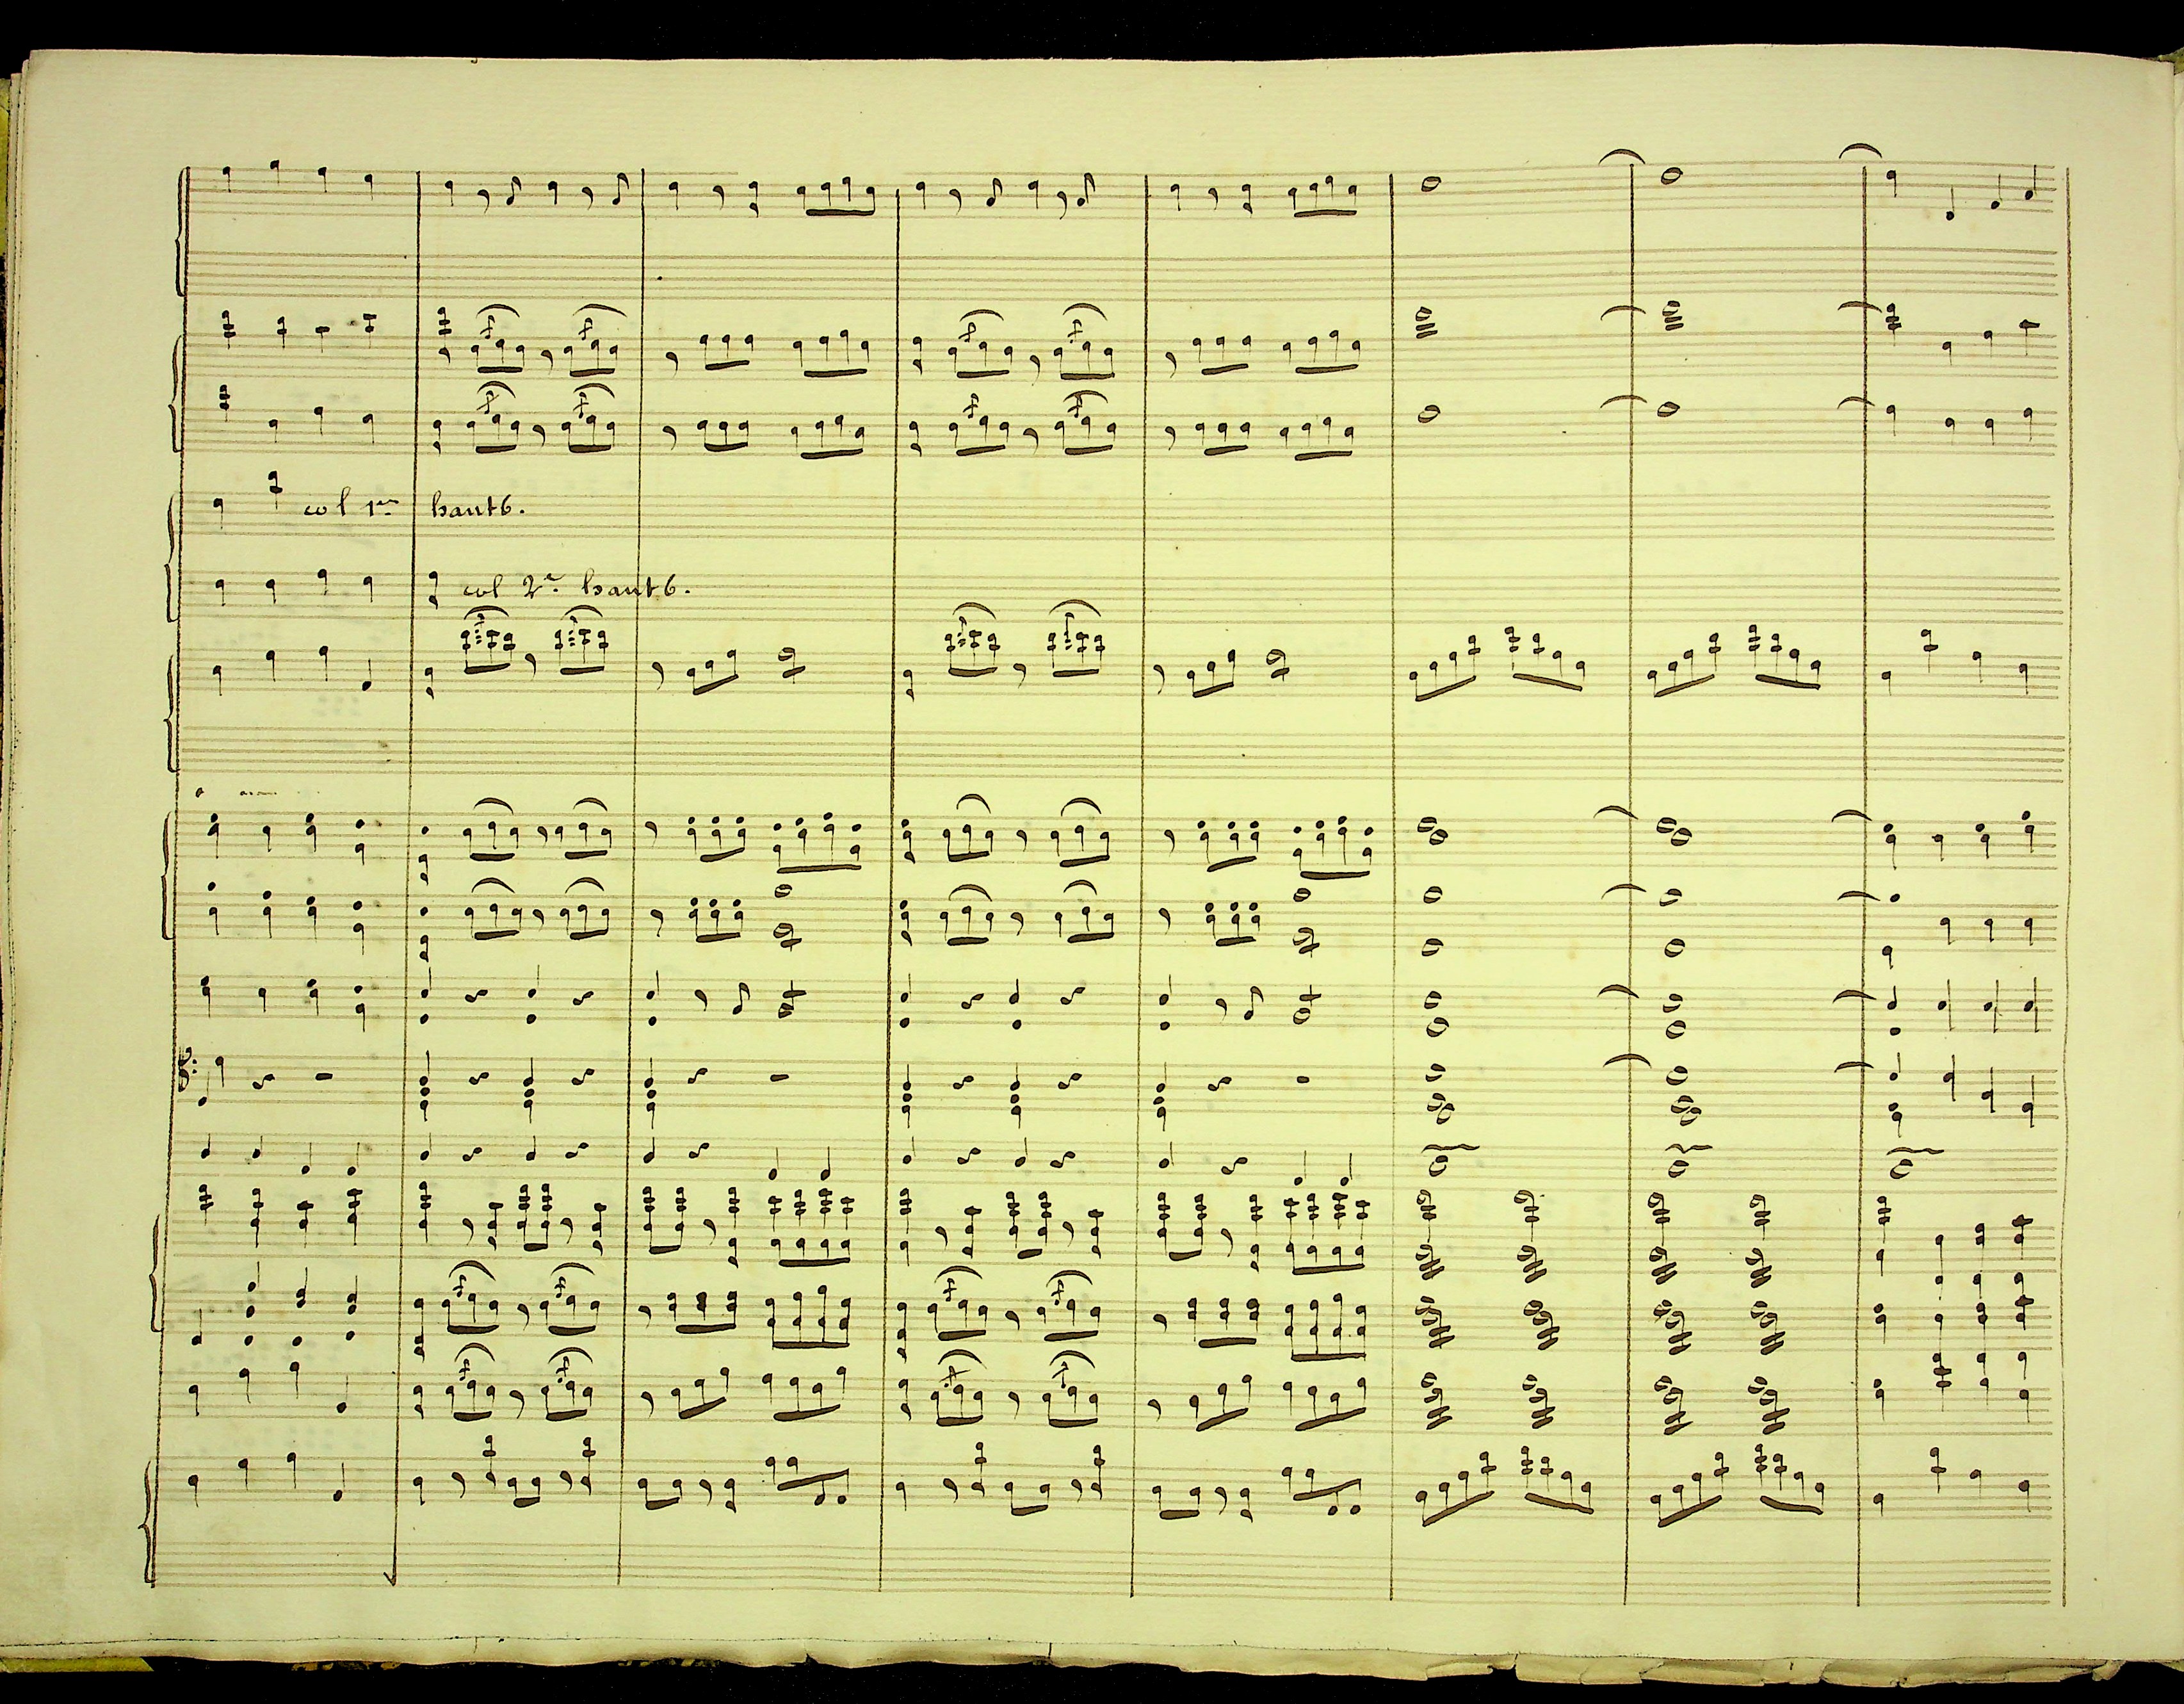 col 1er hautb.
col 2e. hautb.